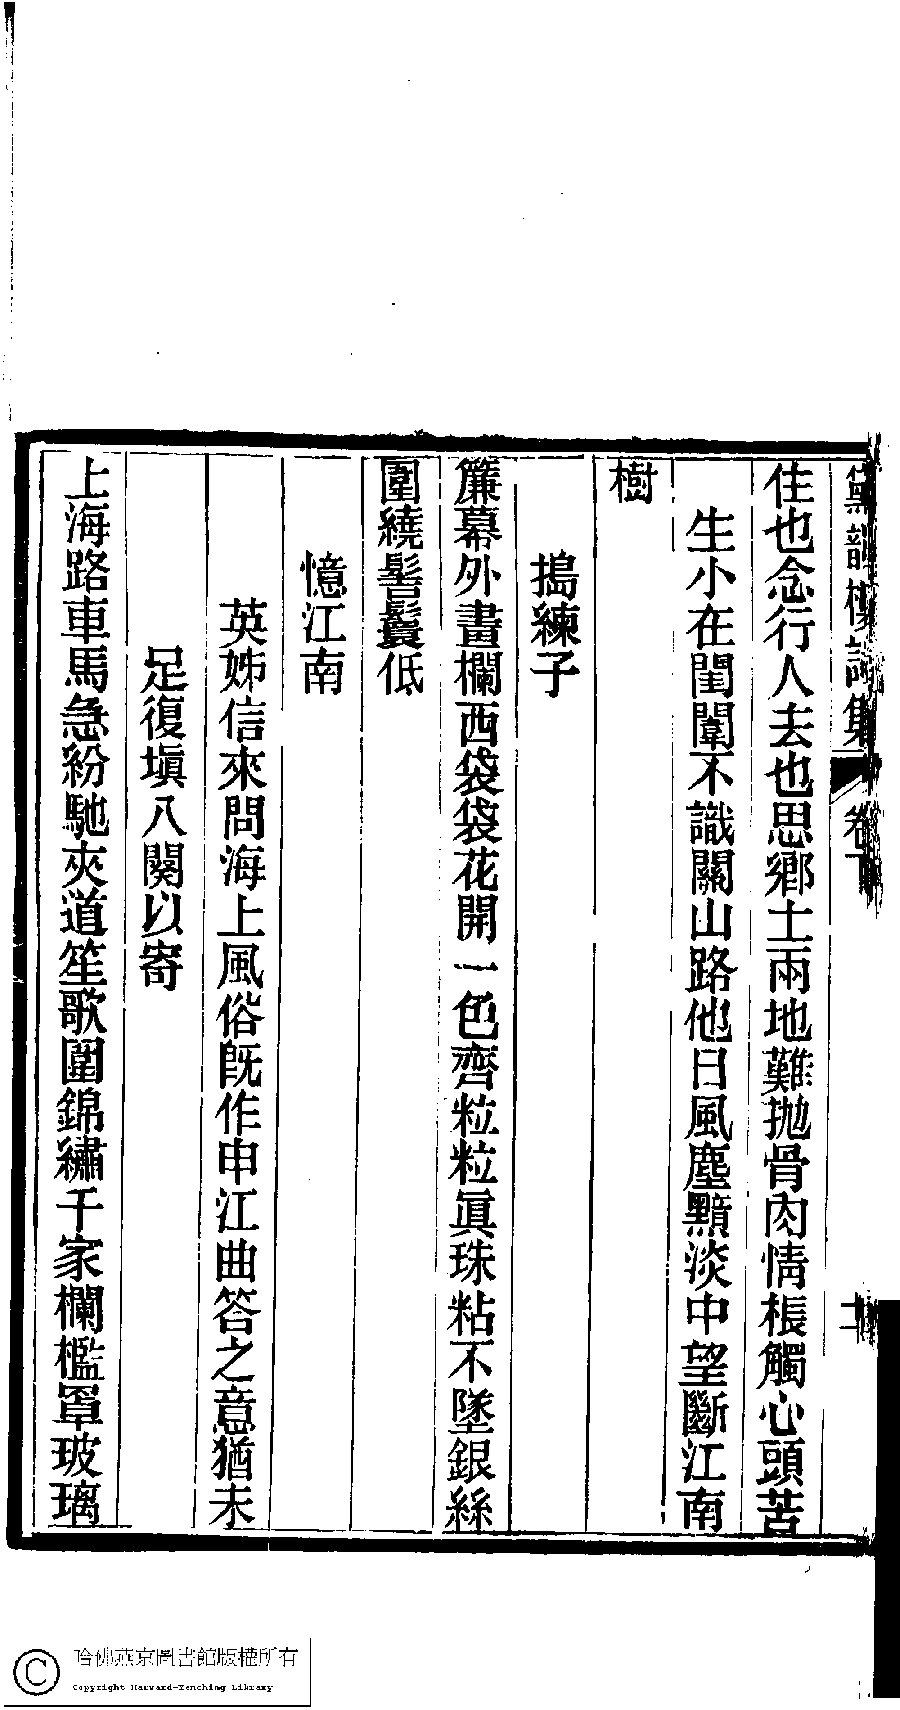 黛韻樓詩集 卷下 十一
住也念行人去也思鄉土兩地難拋骨肉情棖觸心頭苦
生小在閨闈不識關山路他日風塵黯淡中望斷江南
樹
搗練子
簾幕外畫欄西袋袋花開一色齊粒粒眞珠粘不墜銀絲
圍繞髻鬟低
憶江南
英姊信來問海上風俗旣作申江曲答之意猶未
足復塡八闋以寄
上海路車馬急紛馳夾道笙歌圍錦繡千家欄檻罩玻璃
哈佛燕京圖書館版權所有
Copyright Harvard-Yenching Library